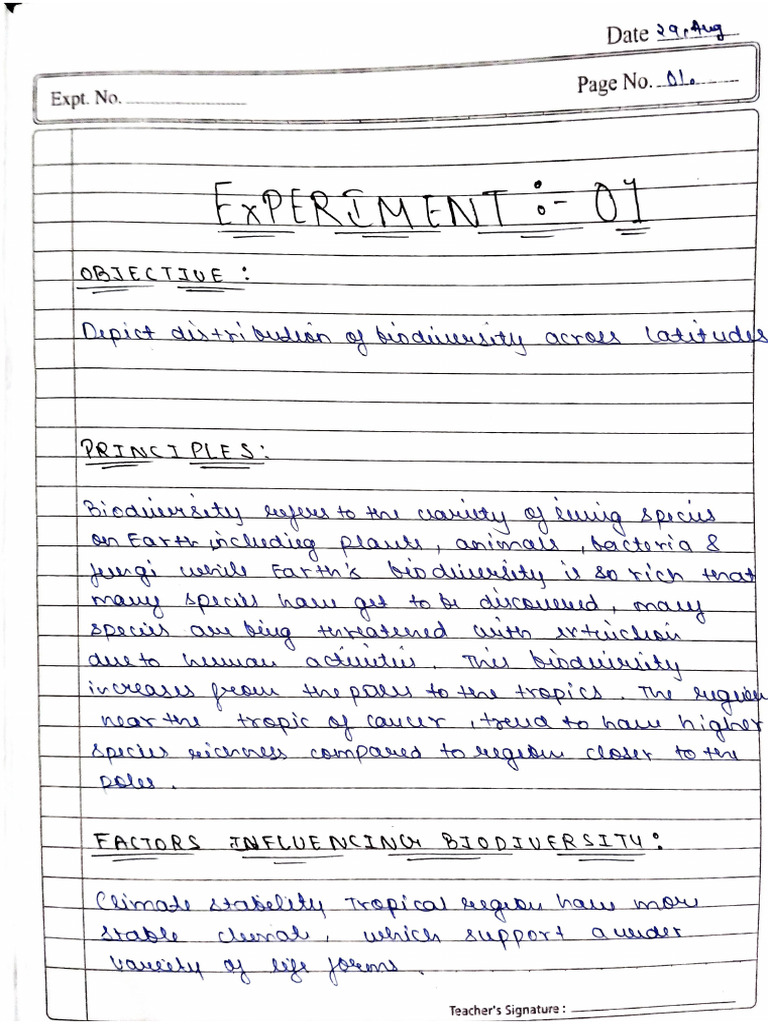 Date 29, Aug
Expt. No.
Page No. 01.
EXPERIMENT :- 01
OBJECTIVE :
Depict distribution of biodiversity across latitudes
PRINCIPLES :
Biodiversity refers to the variety of living species
on Earth, including plants, animals, bacteria &
fungi while Earth's biodiversity is so rich that
many species have yet to be discovered, many
species are being threatened with extinction
due to human activities. This biodiversity
increases from the poles to the tropics. The region
near the tropic of cancer, trend to have higher
species richness compared to region closer to the
poles.
FACTORS INFLUENCING BIODIVERSITY :
Climate stability Tropical region have more
stable climat, which support a wider
variety of life forms.
Teacher's Signature :